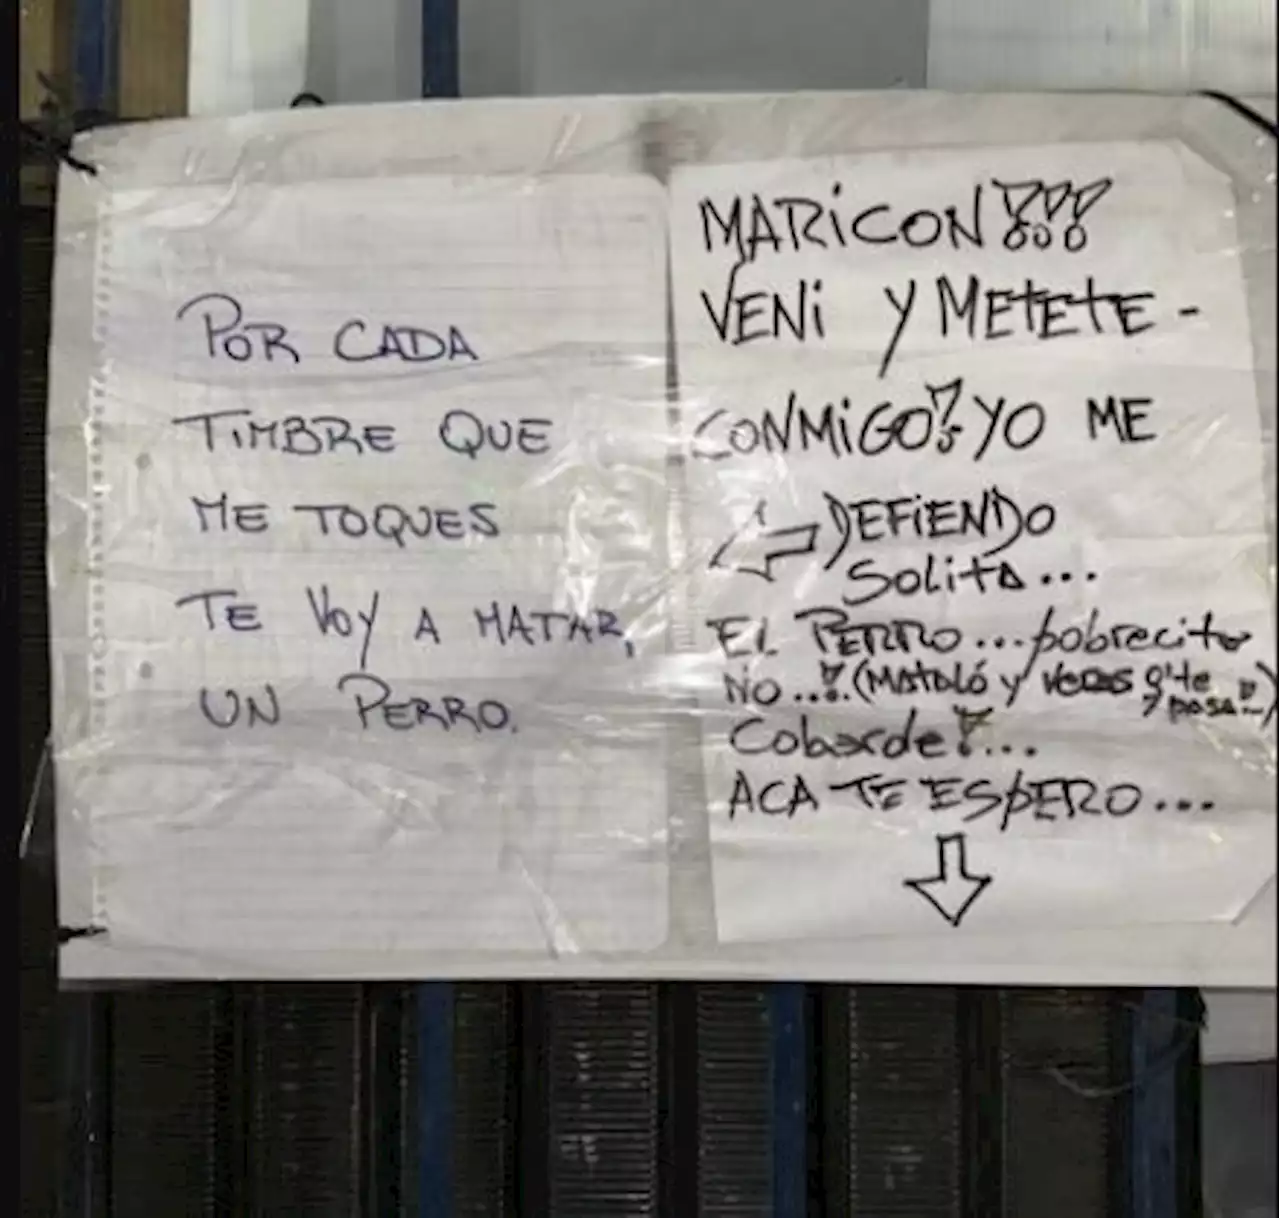 POR CADA
TIMBRE QUE
ME TOQUES
TE VOY A MATAR,
UN PERRO.
MARiCON!!!
VENi Y METETE -
CONMiGO! YO ME
DEFiENDO
Solita...
EL PERRO... pobrecito
NO..!.. (Mataló y veras q' te pasa!..)
Cobarde!...
ACA TE ESpERO...